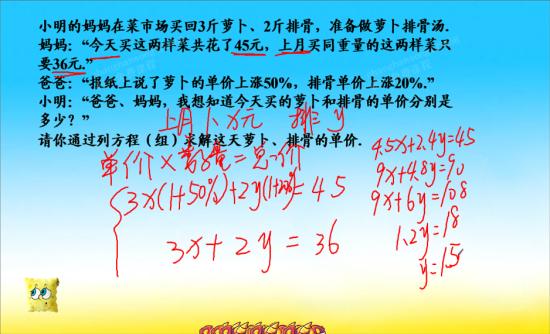 小明的妈妈在菜市场买回3斤萝卜、2斤排骨，准备做萝卜排骨汤.
妈妈：“今天买这两样菜共花了45元，上月买同重量的这两样菜只
要36元.”
爸爸：“报纸上说了萝卜的单价上涨50%，排骨单价上涨20%.”
小明：“爸爸、妈妈，我想知道今天买的萝卜和排骨的单价分别是
多少？”
上月卜x元 排：y
请你通过列方程（组）求解这天萝卜、排骨的单价.
单价×数量=总价
3x(1+50%)+2y(1+20%)=45
3x+2y=36
4.5x+2.4y=45
9x+4.8y=90
9x+6y=108
1.2y=18
y=15